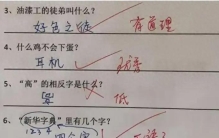 3、油漆工的徒弟叫什么?
好色之徒 有道理
4、什么鸡不会下蛋?
耳机
5、“高”的相反字是什么?
低
6、“新华字典”里有几个字?
1 2 3 4
四个字